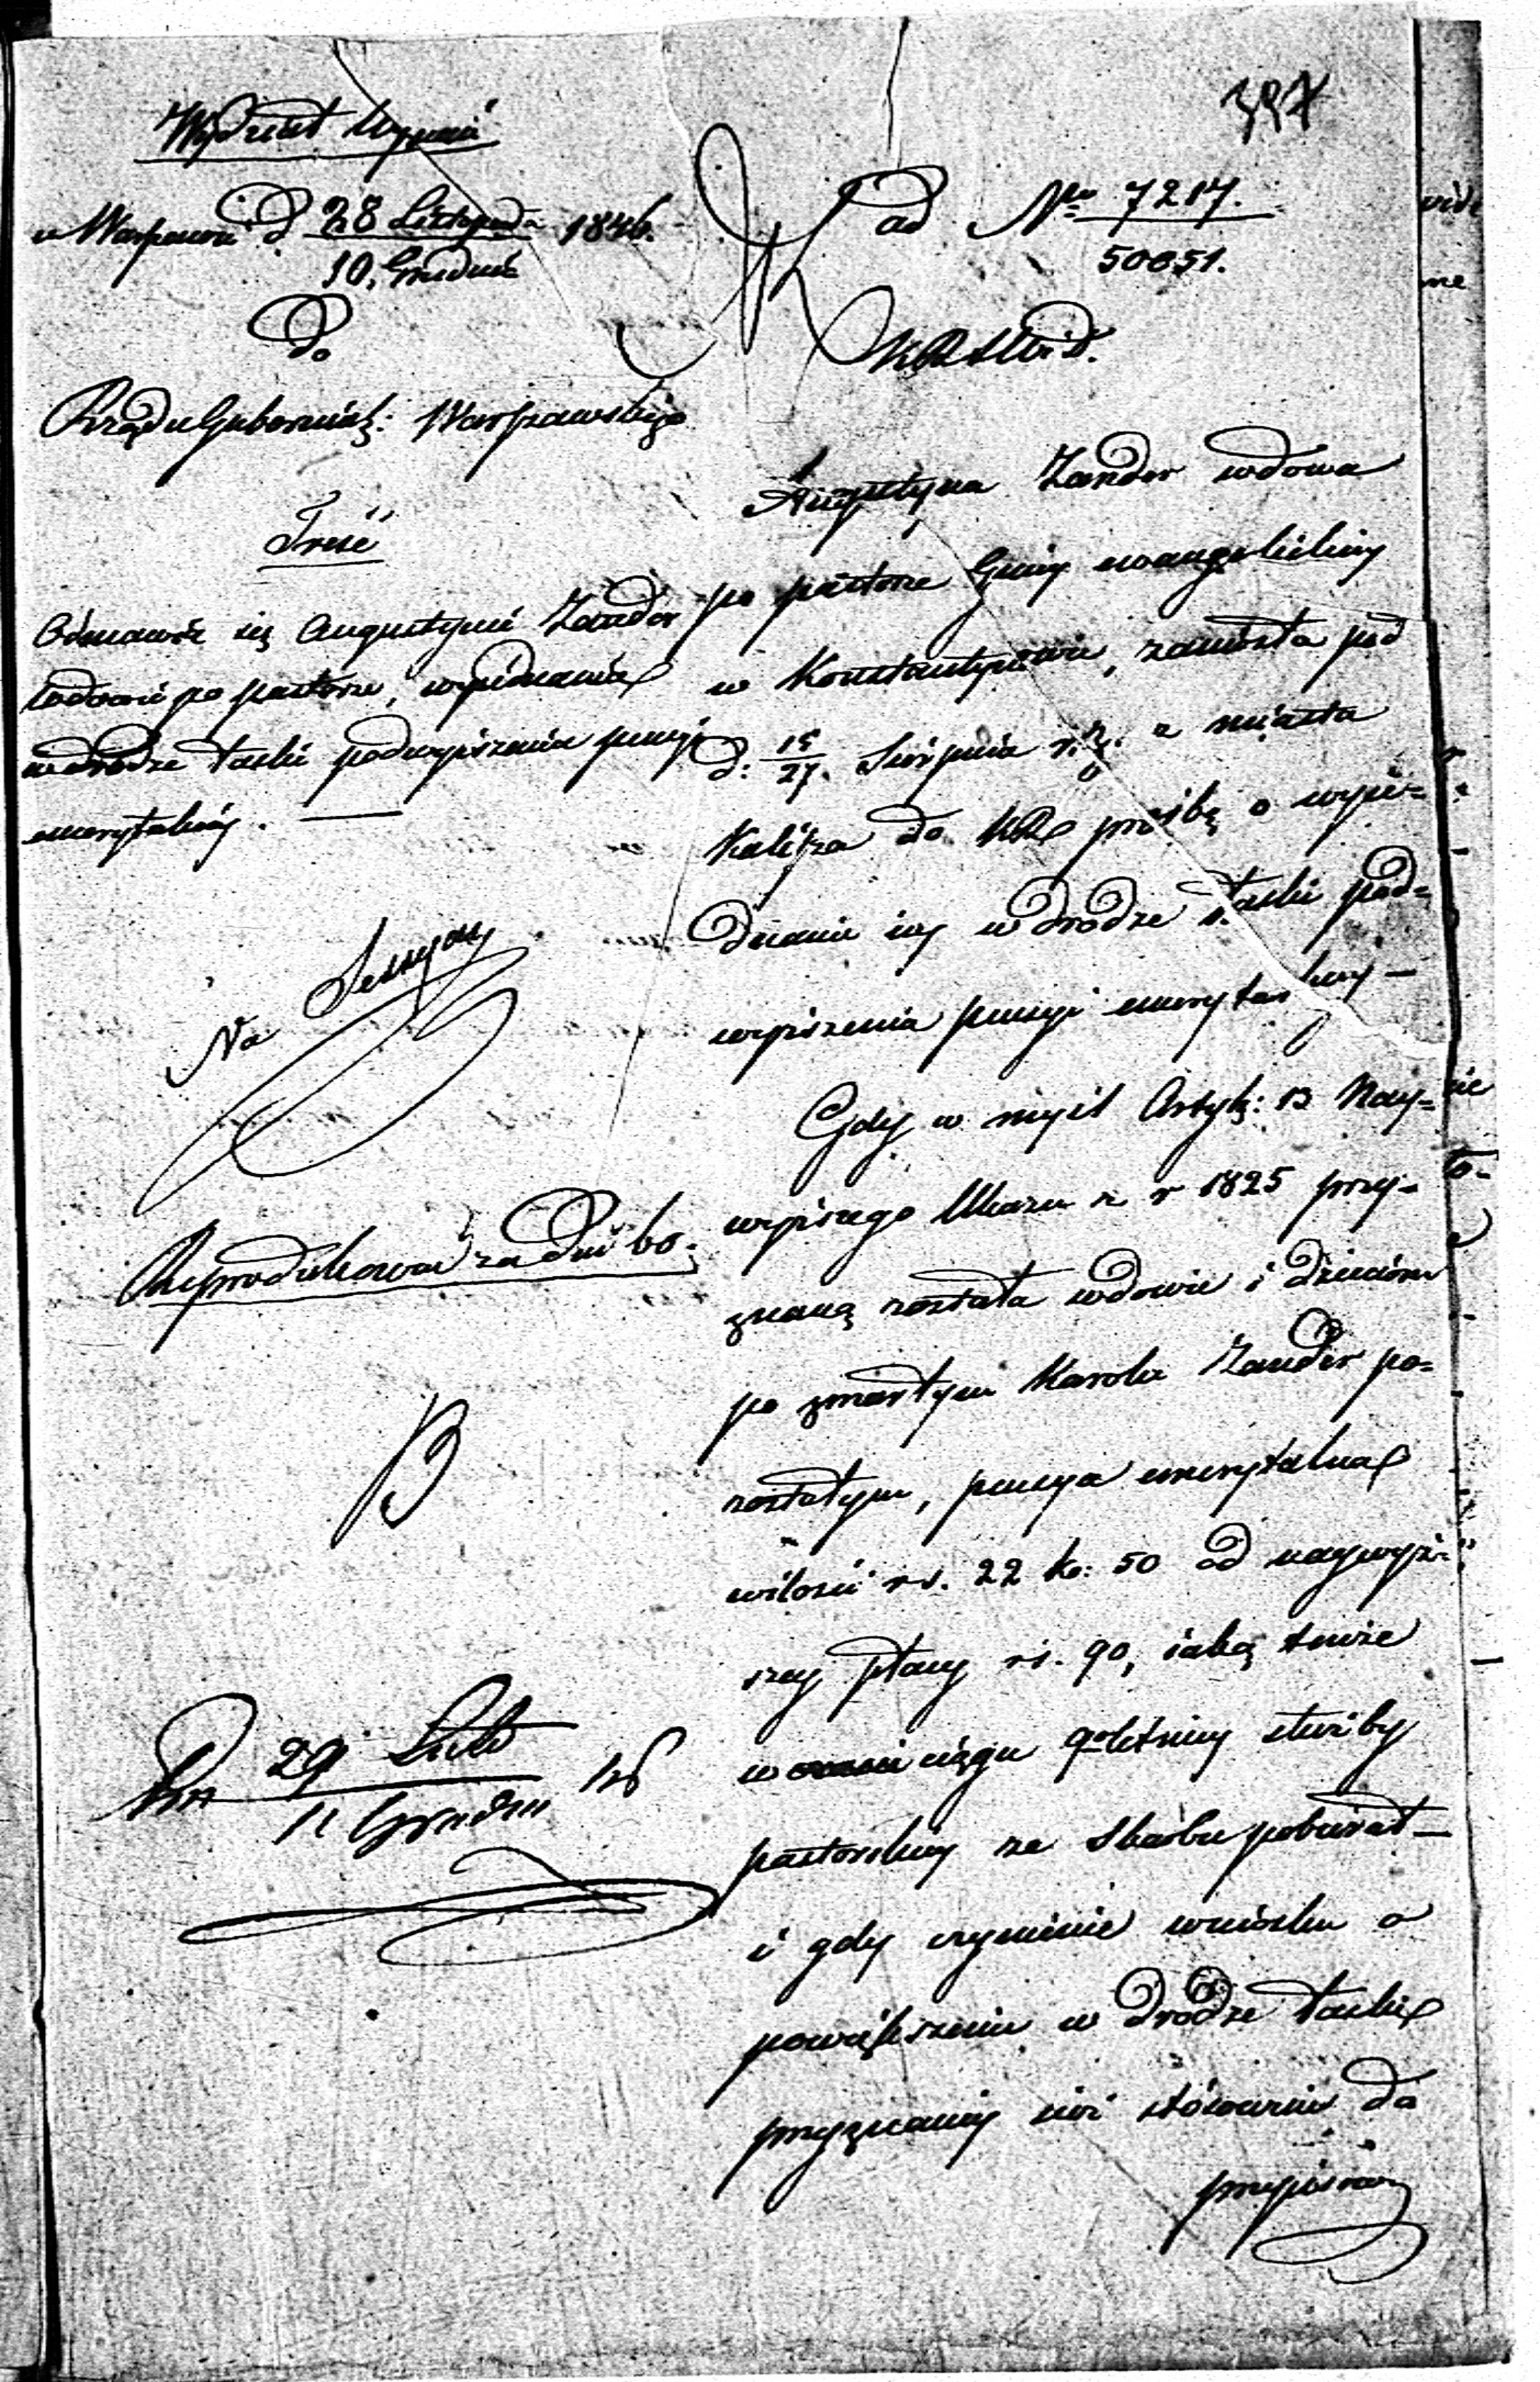 397
Wydział Wyznań
w Warszawie d 28 Listopada 1846.
10. Grudnia
ad Nro 7217.
50851.
Do
Rządu Gubernial: Warszawskiego
Treść
Odmawia się Augustynie Zander
wdowie po pastorze, wyiednania
w drodze łaski podwyższenia pensyi
emerytalney.
Na Sessyą
Reprodukować za dni 60.
29 Listo
11 Grudnia
KRSWiD.
Augustyna Zander wdowa
po pastorze Gminy ewangelickiey
w Konstantynowie, zaniosła pod
d: 15/27. Sierpnia r. z. z miasta
Kalisza do KR prośbę o wyie-
dnanie iey w drodze łaski pod-
wyższenia pensyi emerytalney –
Gdy w myśl Artyk: 13 Nay-
wyższego Ukazu z r 1825 przy-
znaną została wdowie i dzieciom
po zmarłym Karolu Zander po-
zostałym, pensya emerytalna
w ilości rs. 22 k: 50 od naywyż-
szey płacy rs. 90, iaką tenże
w ciągu 9letniey służby
pastorskiey ze Skarbu pobierał –
i gdy czynienie wniosku o
powiększenie w drodze łaski
przyznaney iuż stósownie do
przepisów